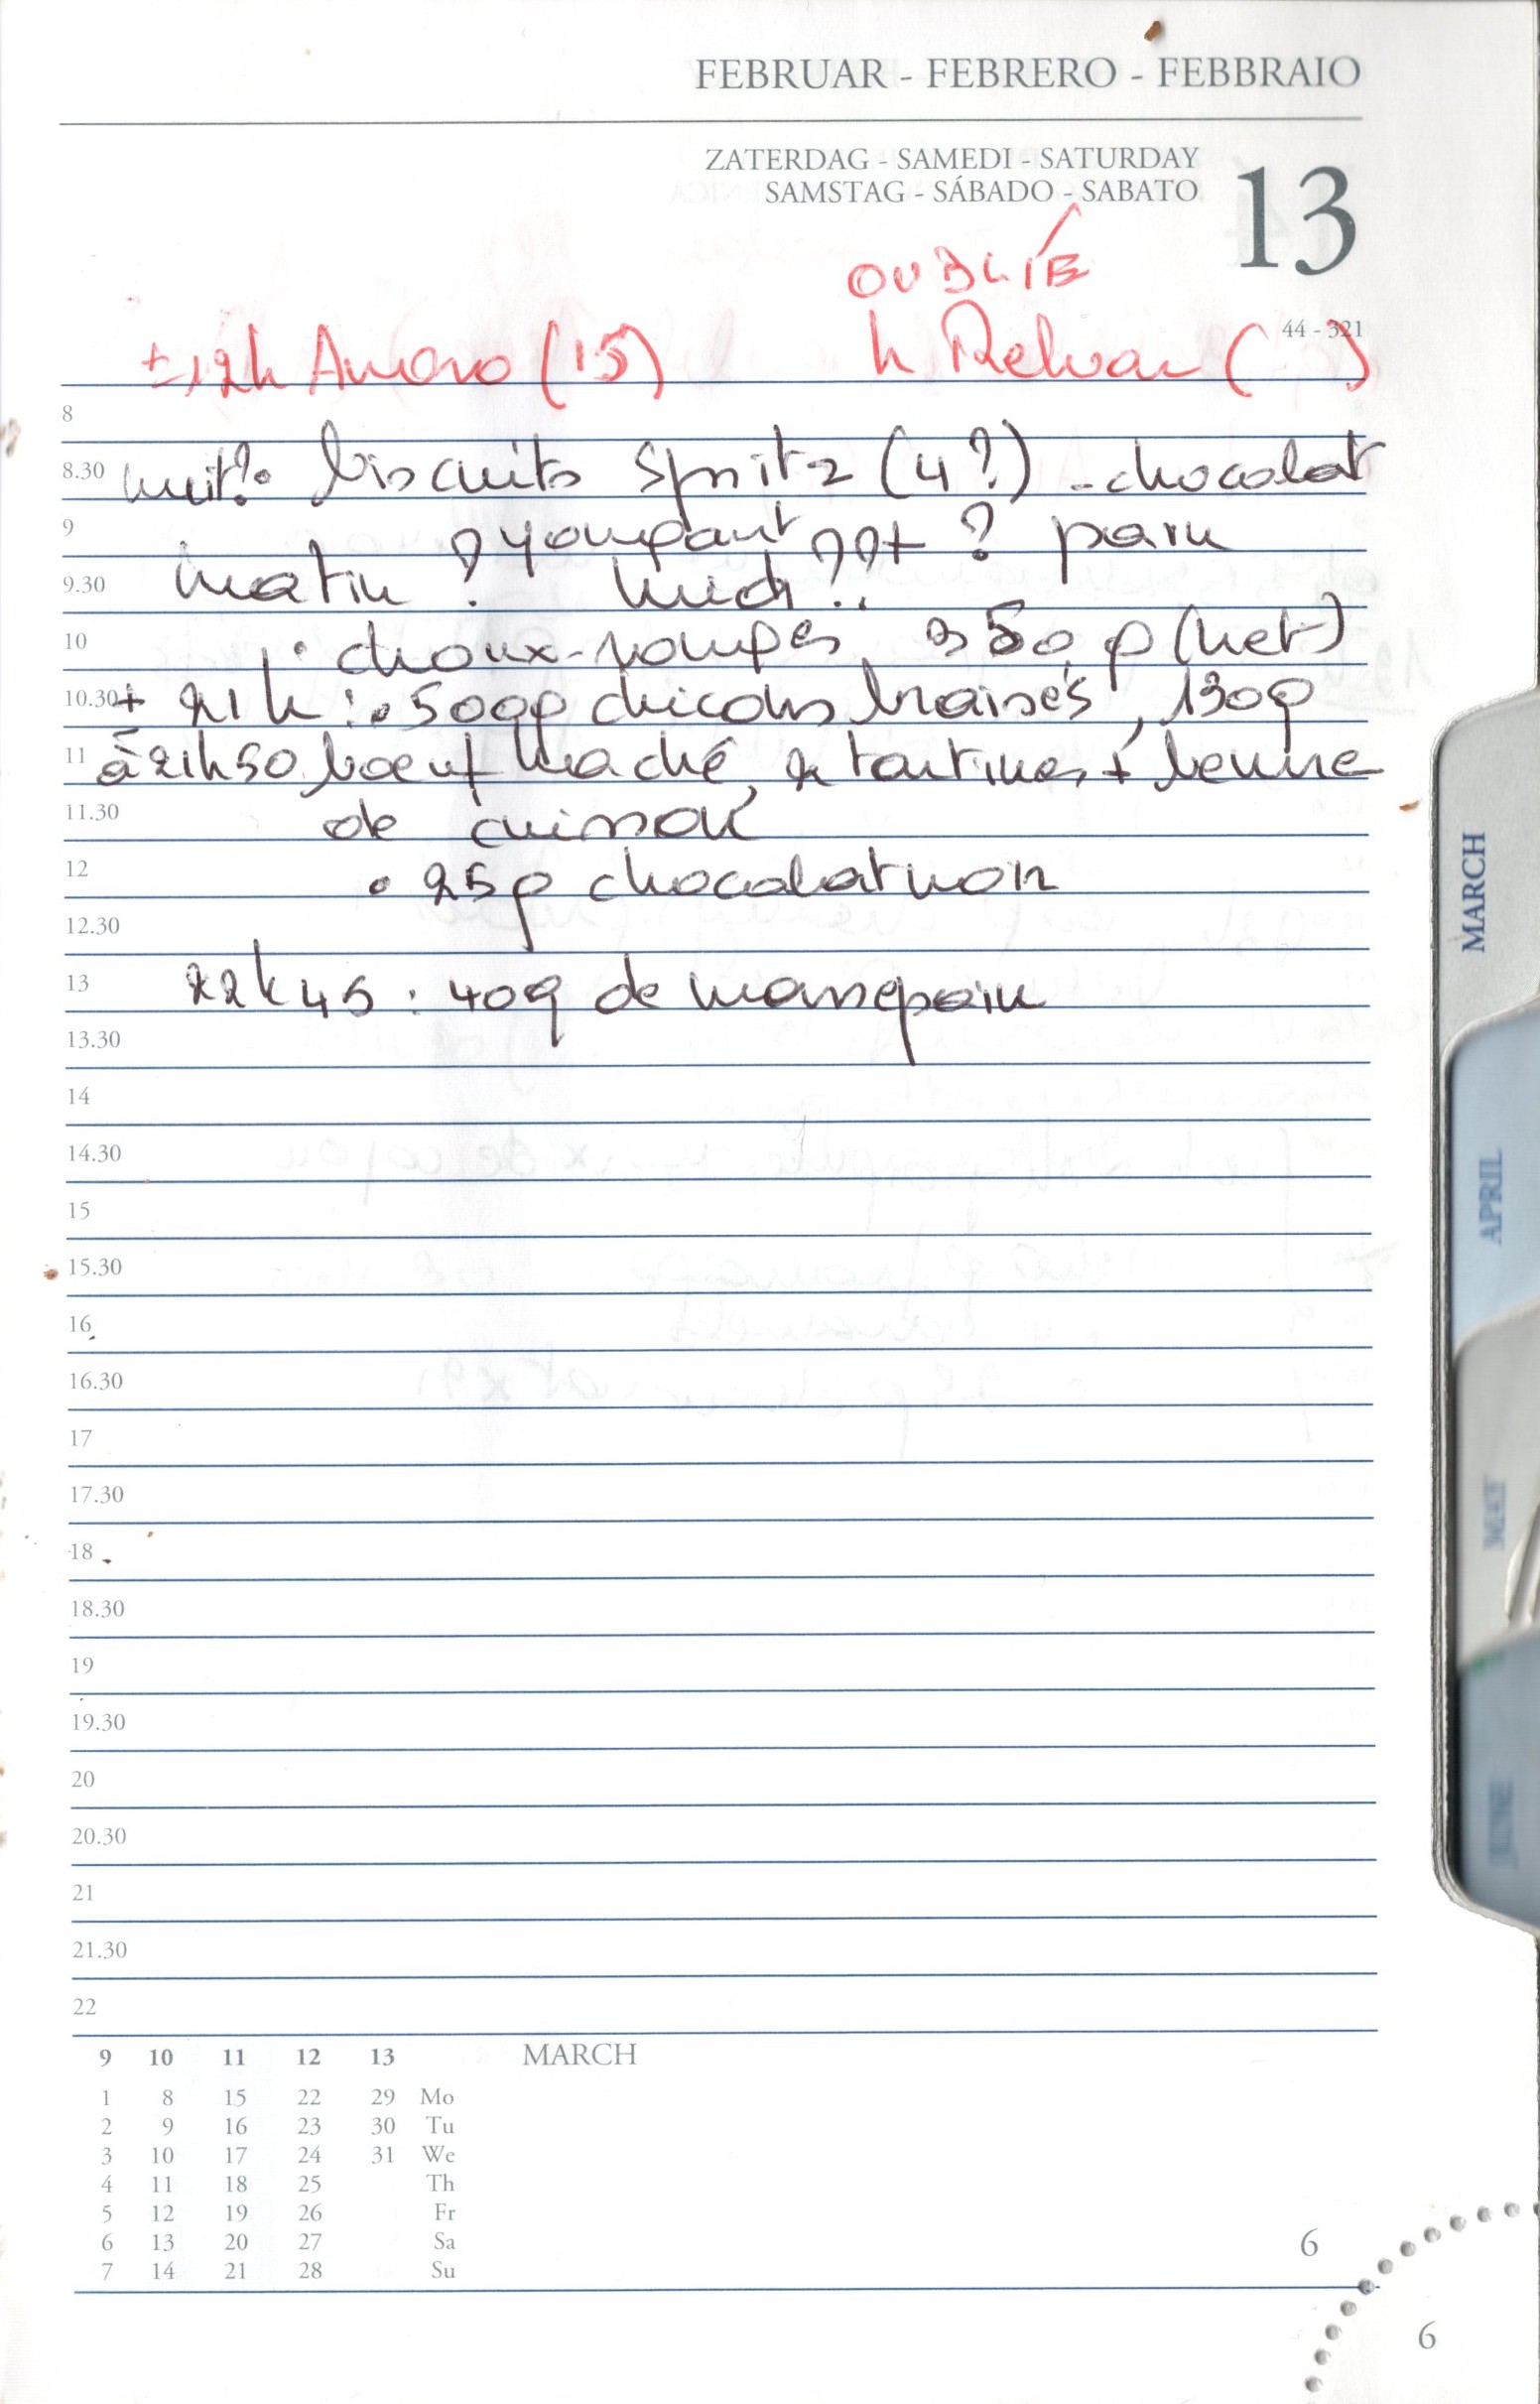 FEBRUAR - FEBRERO - FEBBRAIO
ZATERDAG - SAMEDI - SATURDAY
SAMSTAG - SÁBADO - SABATO
13
OUBLIÉ
44 - 321
± 12h (15) h (   )
8
8.30 nuit?: biscuits Spritz (4?) - chocolat
9 ? ??+ ? pain
9.30 matin ? midi ?:
10 • choux-rouges 350 g (net)
10.30 ± 21h : • 500g chicons braisés, 130g
11 à 21h50 boeuf haché, 2 tartines + beurre
11.30 de cuisson
12 • 25g chocolat noir
12.30
13 22h45 : 40g de massepain
13.30
14
14.30
15
15.30
16
16.30
17
17.30
18
18.30
19
19.30
20
20.30
21
21.30
22
9 10 11 12 13 MARCH
1 8 15 22 29 Mo
2 9 16 23 30 Tu
3 10 17 24 31 We
4 11 18 25 Th
5 12 19 26 Fr
6 13 20 27 Sa
7 14 21 28 Su
6
6
MARCH
APRIL
JUNE